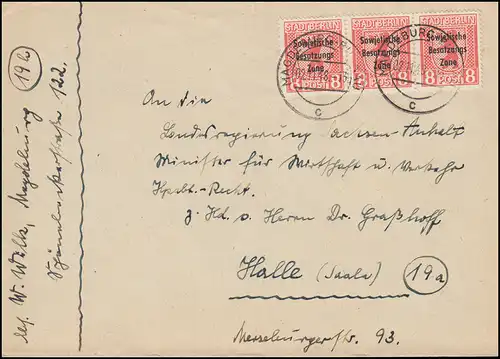 STADT BERLIN STADT BERLIN STADT BERLIN
Sowjetische Sowjetische Sowjetische
Besatzungs Besatzungs Besatzungs
Zone Zone Zone
8 POST 8
MAGDEBURG
c c
An die
Landesregierung Sachsen-Anhalt
Minister für Wirtschaft u. Verkehr
Hpabt.-Recht.
z. Hd. v. Herrn Dr. Graßhoff
Halle (Saale) (19a)
Merseburgerstr. 93.
Abs. W. Wilk, Magdeburg (19b)
122.